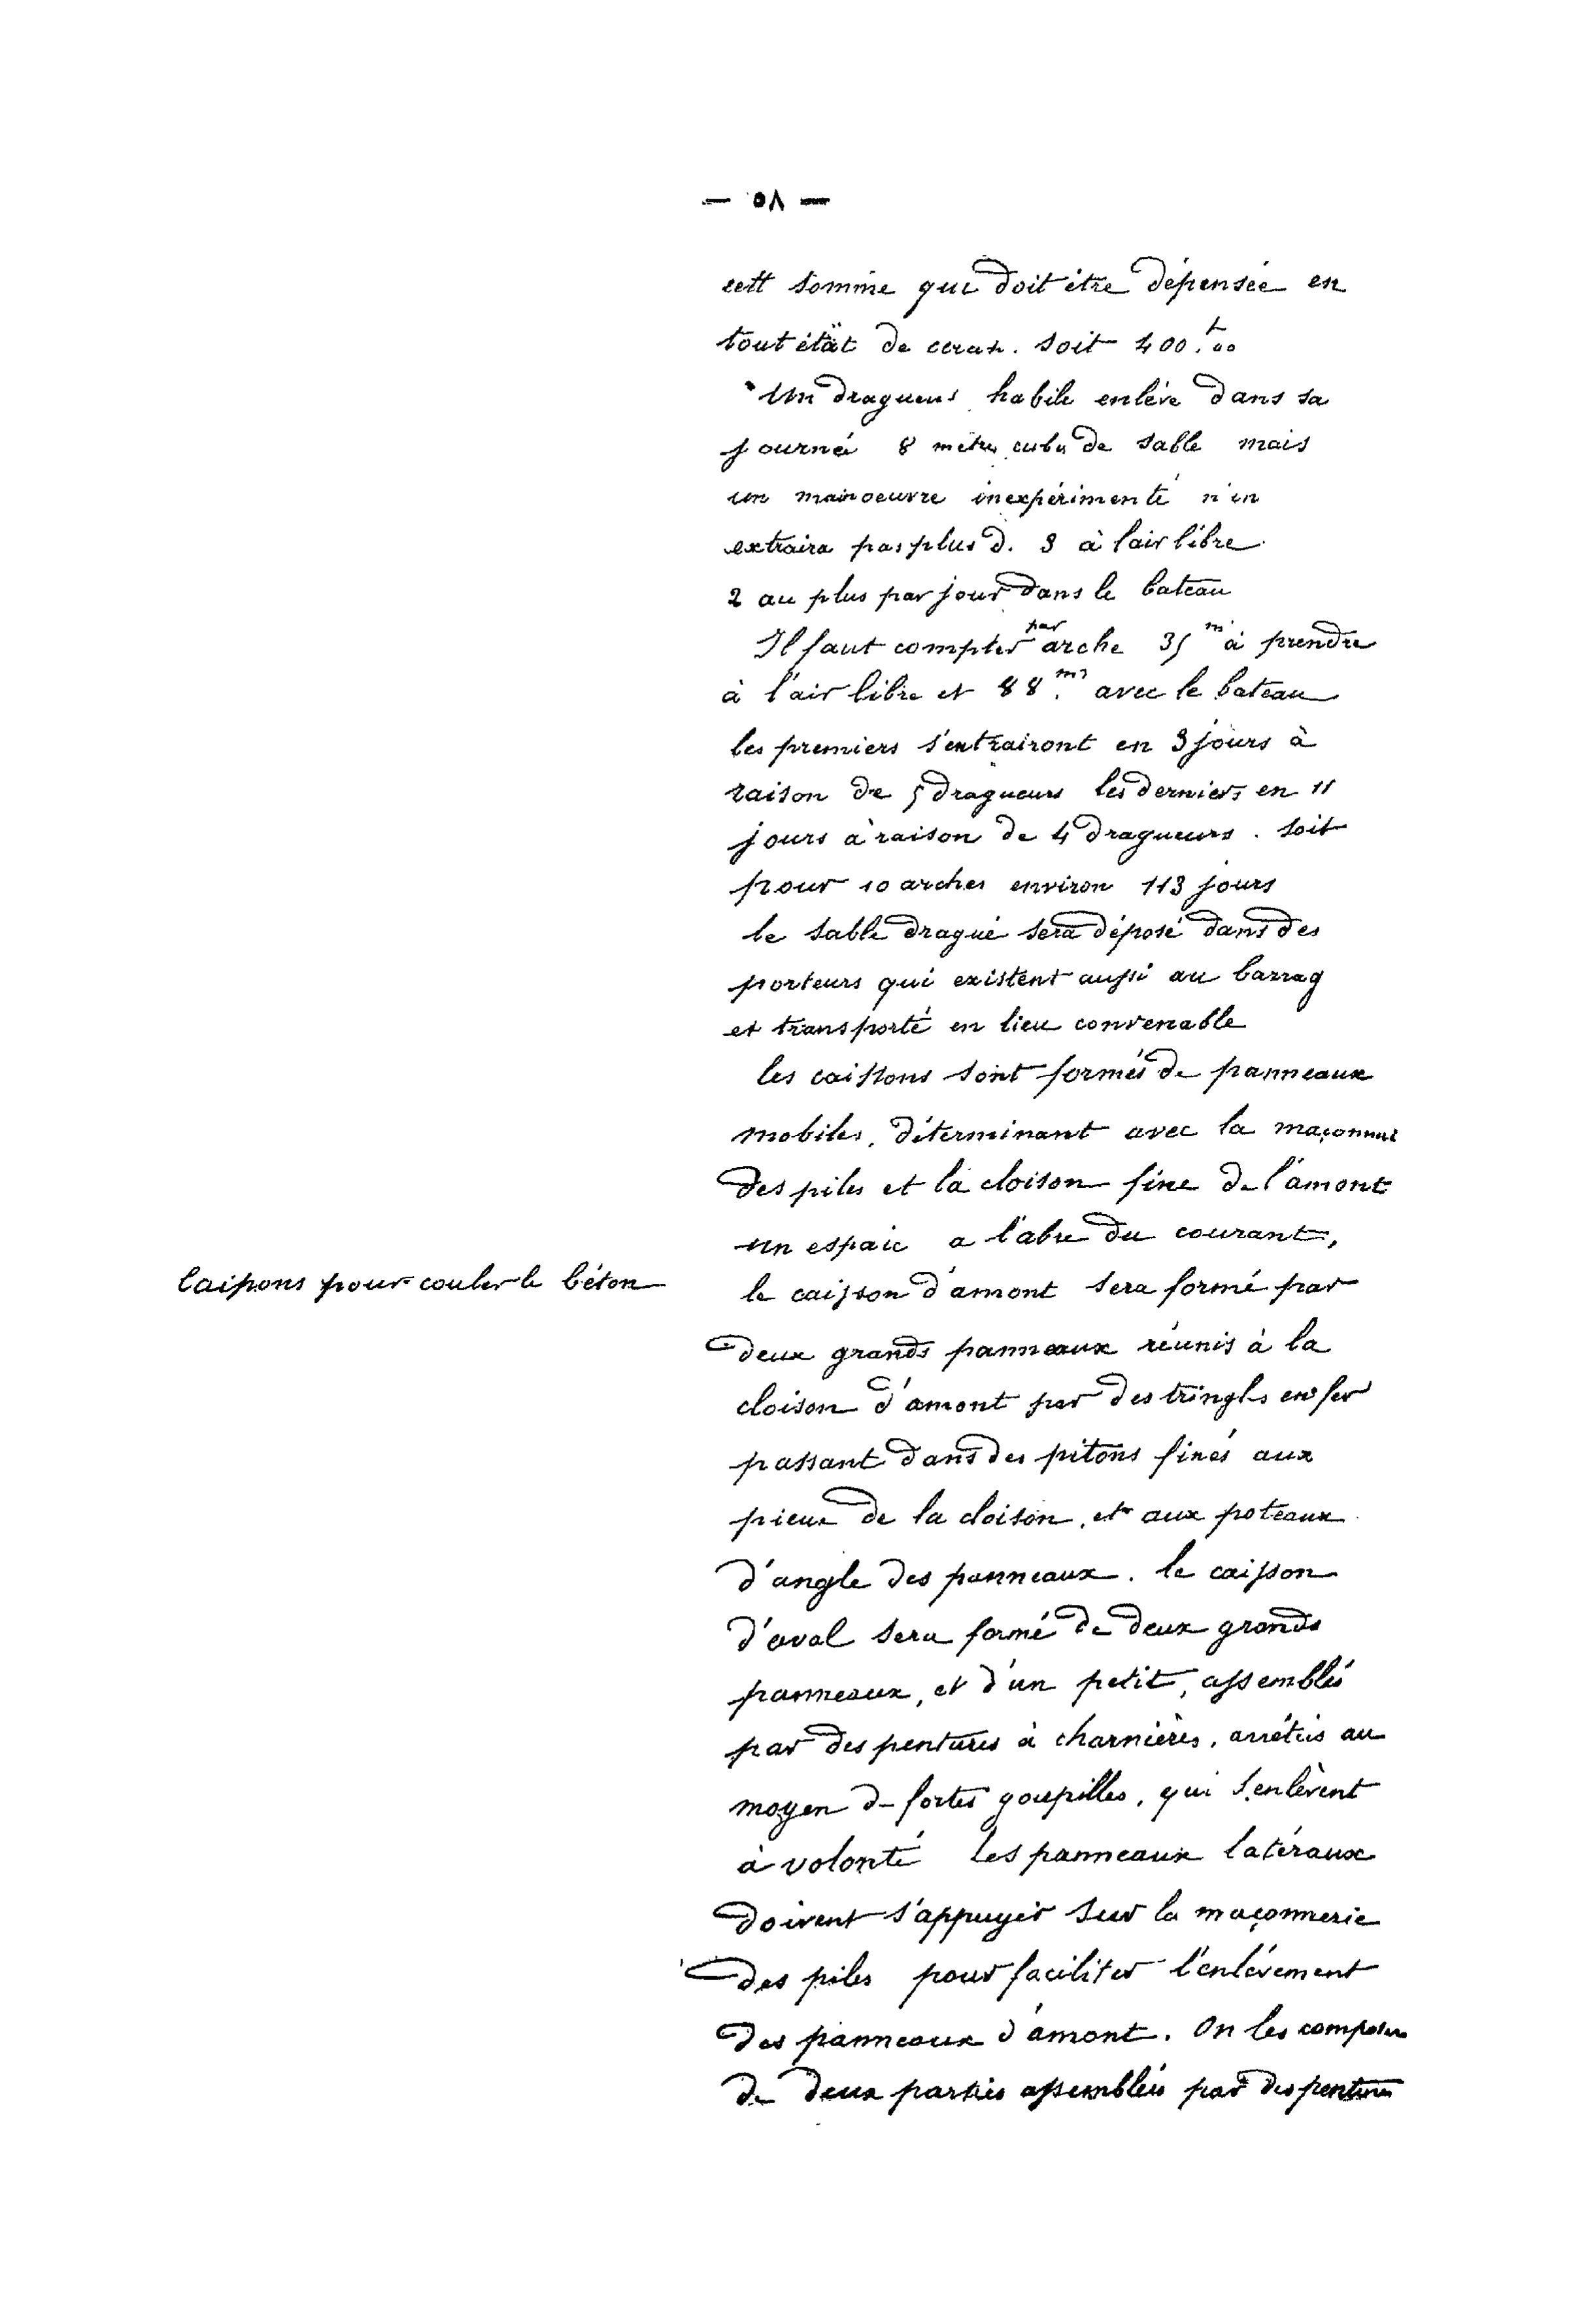 — ٥٨ —
cett somme qui doit être dépensée en
tout état de . soit 400.f00
Un dragueur habile enlève dans sa
journée 8 mètres cubes de sable mais
un manoeuvre inexpérimenté n'en
extraira pas plus d. 3 à l'air libre
2 au plus par jour dans le bateau
Il faut compter par arche 35 m à prendre
à l'air libre et 88 m3 avec le bateau
les premiers s'extrairont en 3 jours à
raison de 5 dragueurs les derniers en 11
jours à raison de 4 dragueurs. soit
pour 10 arches environ 113 jours
le sable dragué sera déposé dans des
porteurs qui existent aussi au barrag
et transporté en lieu convenable
les caissons sont formés de panneaux
mobiles, déterminant avec la maçonnerie
des piles et la cloison fixe de l'amont
un espace a l'abri du courant,
Caissons pour couler le béton
le caisson d'amont sera formé par
deux grands panneaux réunis à la
cloison d'amont par des tringles en fer
passant dans des pitons fixés aux
pieux de la cloison, et aux poteaux
d'angle des panneaux. le caisson
d'aval sera formé de deux grands
panneaux, et d'un petit, assemblés
par des pentures à charnières, arrêtés au
moyen de fortes goupilles, qui s'enlèvent
à volonté les panneaux latéraux
doivent s'appuyer sur la maçonnerie
des piles pour faciliter l'enlèvement
des panneaux d'amont. On les composera
de deux parties assemblées par des pentures